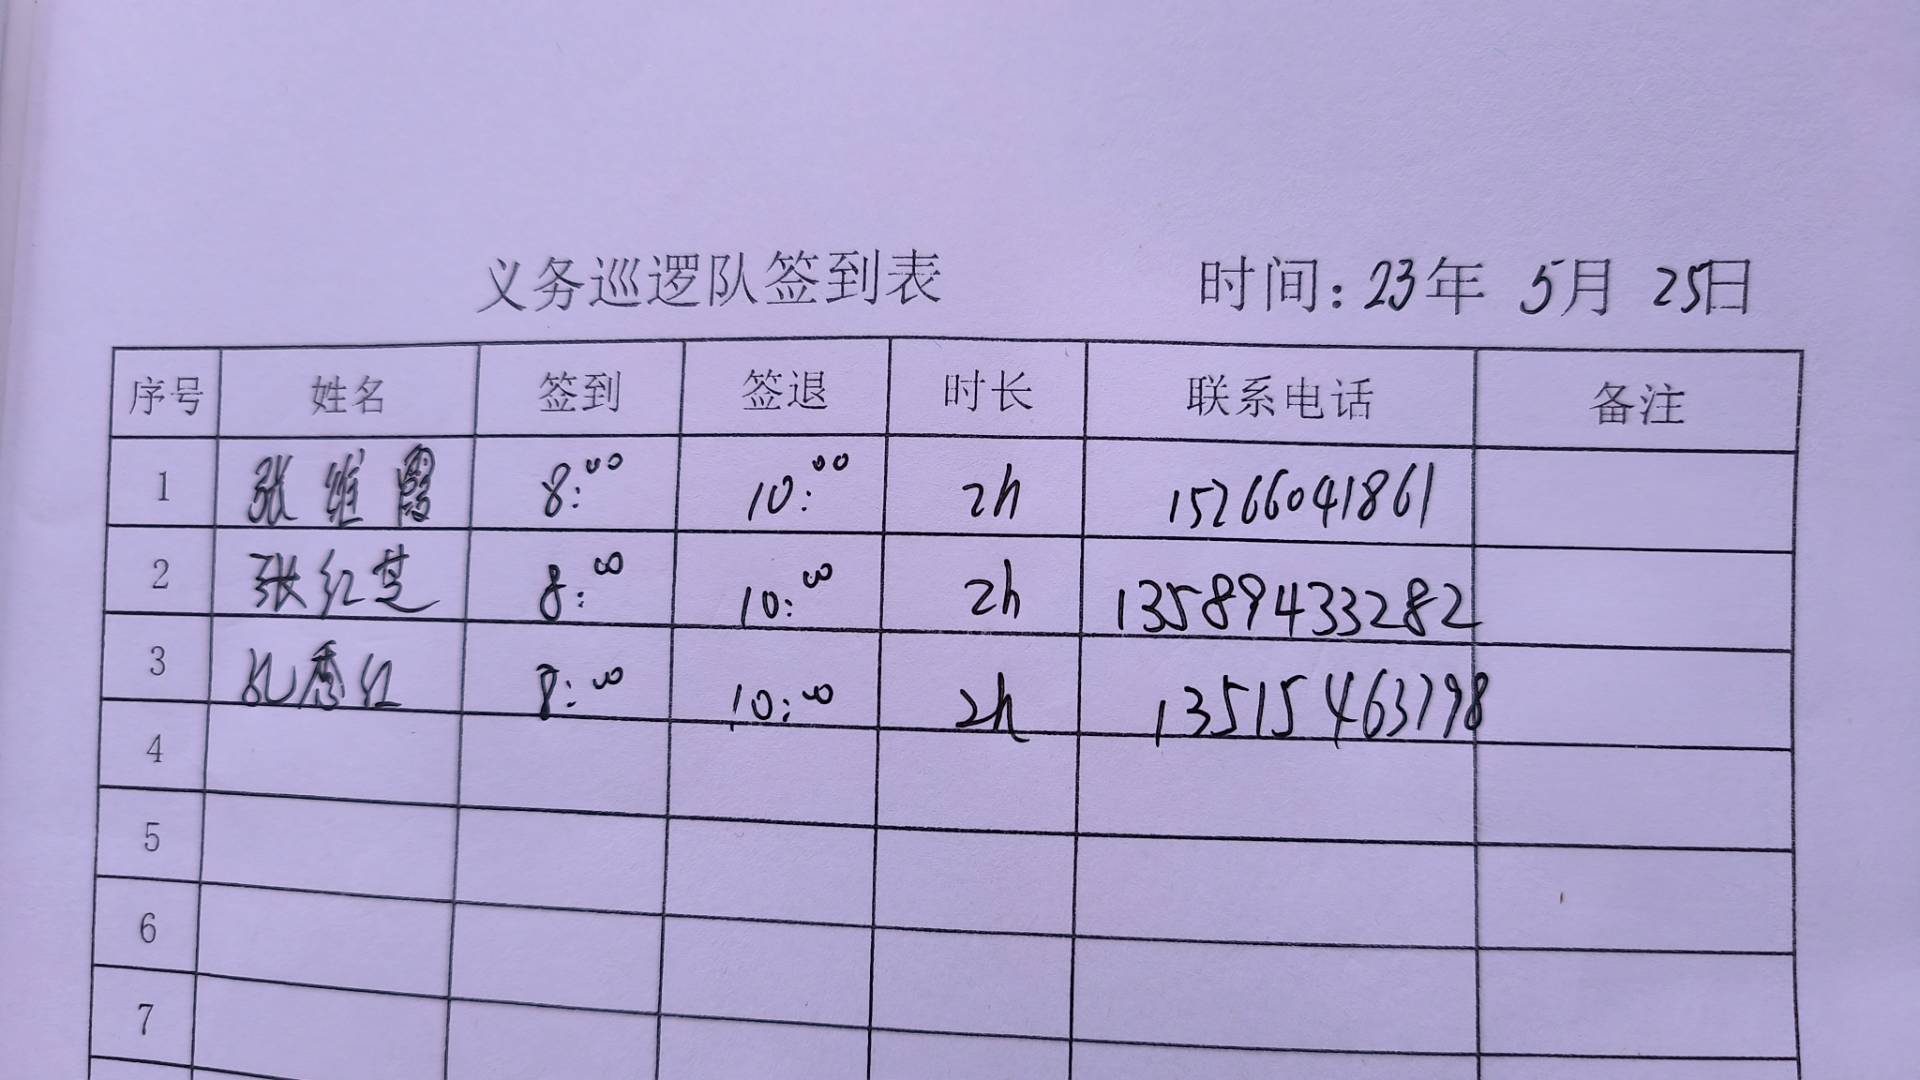 义务巡逻队签到表 时间:23年 5月 25日
序号 姓名 签到 签退 时长 联系电话 备注
1 张维霞 8:00 10:00 2h 15266041861
2 张红芝 8:00 10:00 2h 13589433282
3 孔秀红 8:00 10:00 2h 13515463798
4
5
6
7